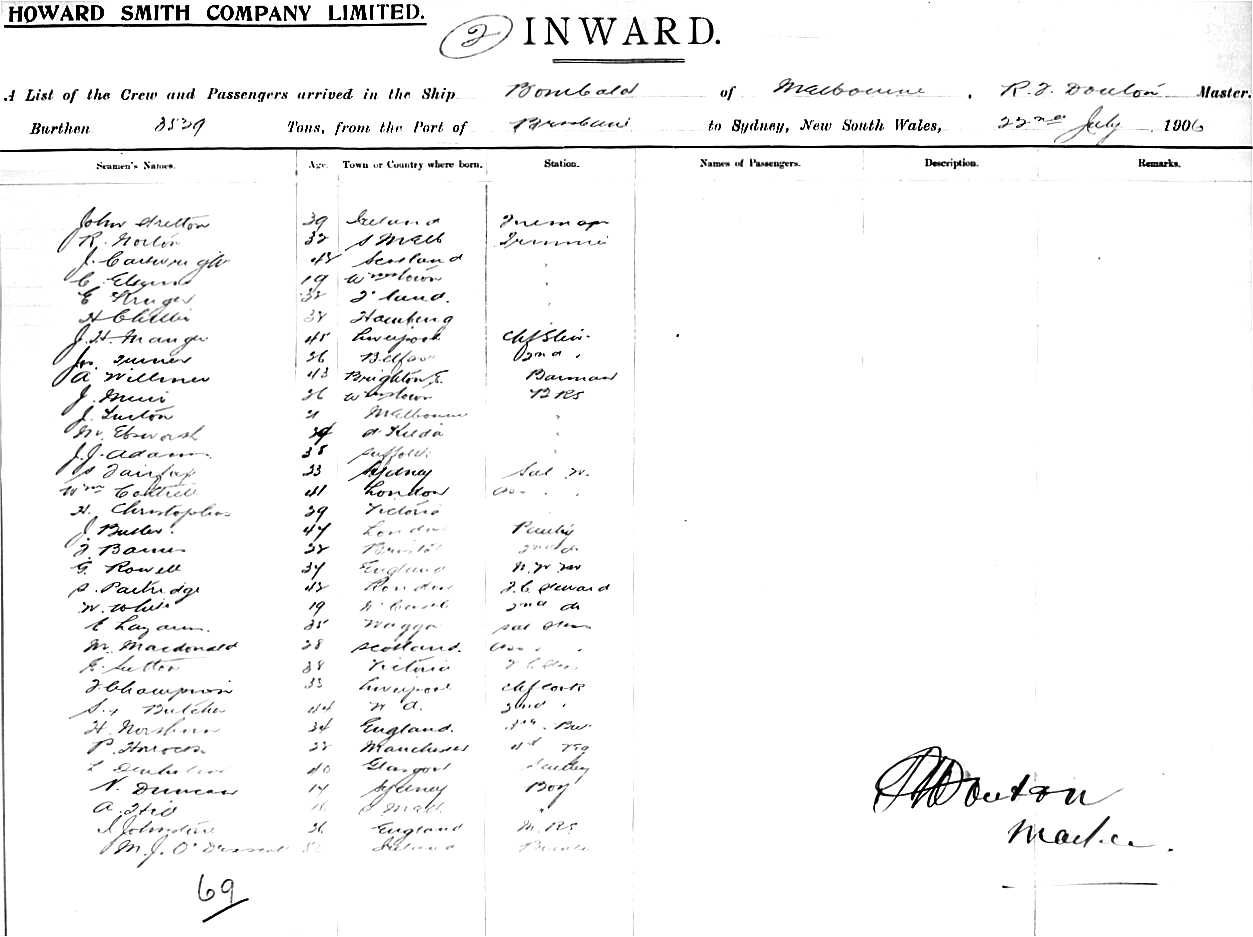 HOWARD SMITH COMPANY LIMITED.
2 INWARD.
A List of the Crew and Passengers arrived in the Ship Bombala of Melbourne, R. J. Douton Master.
Burthen 3539 Tons, from the Port of Brisbane to Sydney, New South Wales, 22nd July 1906
Seamen's Names. Age. Town or Country where born. Station. Names of Passengers. Description. Remarks.
John Stretton 39 Ireland Fireman
R. Norton 32 S Melb Trimmer
J. Cartwright 42 Scotland
C. 19 Wmstown
E Kruger 32 F'land.
H 32 Hamburg
J. H. Manger 45 Liverpool Chf Stew.
Turner 26 Belfast 2nd
A. Willmer 43 Brighton E. Barman
J. Muir 26 Wmstown B RS
J. Luxton 21 Melbourne
W. Ebsworth St Kilda
J. J. Adams 38 Suffolk
S Fairfax 33 Sydney Sal W.
Wm Cottrell 41 London Ass
H. Christopher 29 Victoria
J. Butler. 47 London Pantry
F Barnes 22 Bristol 2nd do
G. Rowell 37 England N. W M
S. Partridge 42 London F. C. Steward
W. White 19 N'Castle 2nd do
E Lazarus. 35 Wagga Sal Stew
W. Macdonald 28 Scotland. Ass
G. Sutton 38 Victoria
F Champion 33 Liverpool Chf Cook
Butcher 44 N A. 2nd
H. 34 England.
P. Horrocks 22 Manchester 4th
L 40 Glasgow
N. Duncan 17 Sydney Boy
A. S Melb
J Johnstone 26 England M. RS
M. J. O' Ireland
69
R J Douton
Master.